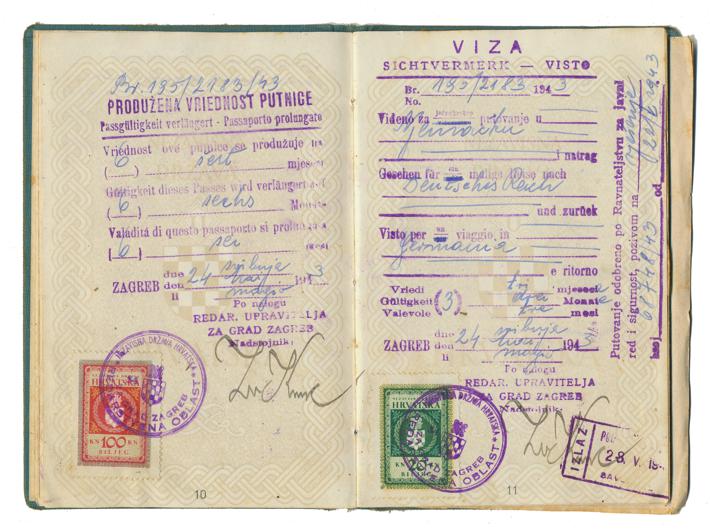 Br. 195/2183/43
PRODUŽENA VRIEDNOST PUTNICE
Passgültigkeit verlängert - Passaporto prolungato
Vriednost ove putnice se produžuje na
( 6 ) šest mjeseci
Gültigkeit dieses Passes wird verlängert auf
( 6 ) sechs Monate
Validità di questo passaporto si prolunga
( 6 ) sei mesi
dne svibnja
ZAGREB den 24 May 1943
li maggio
Po nalogu
REDAR. UPRAVITELJA
ZA GRAD ZAGREB
Nadstojnik:
NEZAVISNA DRŽAVA HRVATSKA
ZAGREB
OBLAST
HRVATSKA
KN 100 KN
BILJEG
10
VIZA
SICHTVERMERK — VISTO
Br. 195/2183 1943
No.
Viđeno za jednokratno putovanje u
Njemačku
i natrag
Gesehen für ein malige Reise nach
Deutsches Reich
und zurück
Visto per un viaggio in
Germania
e ritorno
Vriedi tri mjeseca
Gültigkeit (3) drei Monate
Valevole tre mesi
dne svibnja
ZAGREB den 24 May 194
li maggio
Po nalogu
REDAR. UPRAVITELJA
ZA GRAD ZAGREB
Nadstojnik:
DRŽAVA HRVATSKA
ZAGREB
OBLAST
HRVATSKA
KN KN
BILJEG
IZLAZ
28. V. 194
SAV
11
Putovanje odobreno po Ravnateljstvu za javni
red i sigurnost, pozivom na
broj 68748/43 od